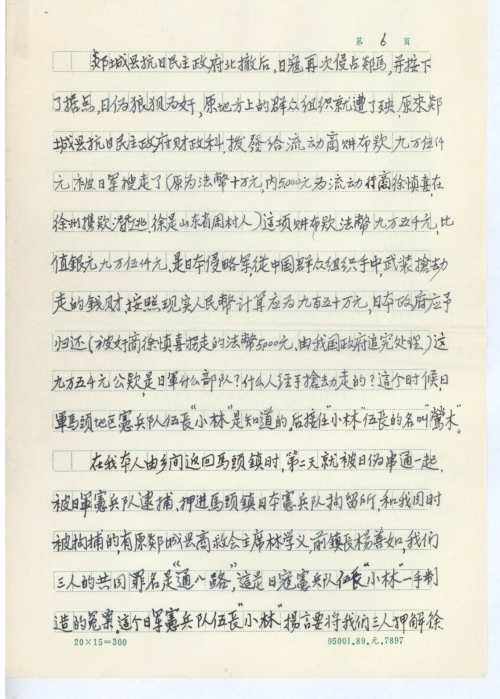 第 6 页
郯城县抗日民主政府北撤后，日寇再次侵占郯马，并按下
了据点，日伪狼狈为奸，原地方上的群众组织就遭了殃，原来郯
城县抗日民主政府财政科，拨發给流动商购布款九万伍仟
元被日军搜走了（原为法幣十万元，内5000元为流动行商徐慎喜，在
徐州携款潜逃，徐是山东省周村人）这项购布款法幣九万五千元，比
值銀元九万伍仟元，是日本侵略军，從中国群众组织手中武装搶劫
走的钱财，按照现实人民幣计算应为九百五十万元，日本政府应予
归还（被奸商徐慎喜拐走的法幣5000元，由我国政府追究处理。）这
九万五千元公款，是日軍什么部队？什么人经手搶劫走的？这个时候，日
軍馬頭地区憲兵队伍長“小林”是知道的，后接任“小林”伍長的名叫“鶯木”。
在我本人由乡间返回馬頭鎮时，第二天就被日伪串通一起，
被日軍憲兵队逮捕，押进馬頭鎮日本憲兵队拘留所，和我同时
被拘捕的，有原郯城县商救会主席林学义，前鎮長楊善如，我们
三人的共同罪名是“通八路”，這是日寇憲兵队伍長“小林”一手制
造的冤案。這个日軍憲兵队伍長“小林”揚言要将我们三人押解徐
20×15=300
95001.89.元.7897